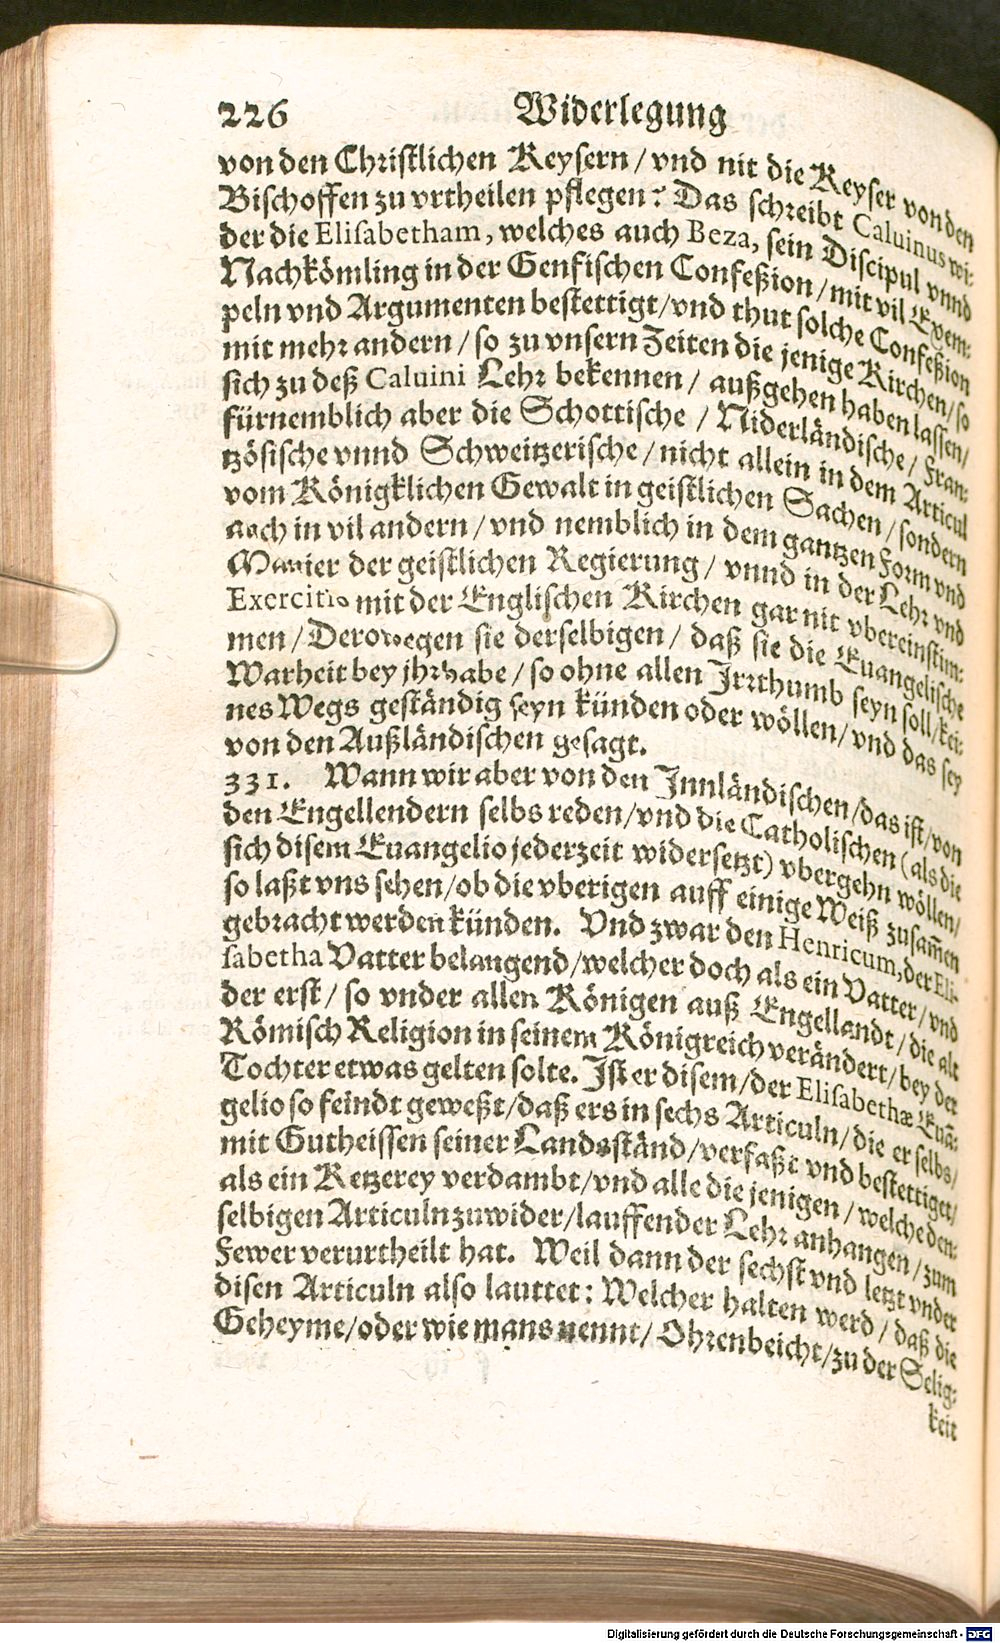 226 Widerlegung
von den Christlichen Keysern / vnd nit die Keyser von den
Bischoffen zu vrtheilen pflegen? Das schreibt Caluinus wi-
der die Elisabetham, welches auch Beza, sein Discipul vnnd
Nachkömling in der Genfischen Confeßion / mit vil Exem-
peln vnd Argumenten bestettigt / vnd thut solche Confeßion
mit mehr andern / so zu vnsern Zeiten die jenige Kirchen / so
sich zu deß Caluini Lehr bekennen / außgehen haben lassen /
fürnemblich aber die Schottische / Niderländische / Fran-
tzösische vnnd Schweitzerische / nicht allein in dem Articul
vom Königklichen Gewalt in geistlichen Sachen / sondern
auch in vil andern / vnd nemblich in dem gantzen Form vnd
Manier der geistlichen Regierung / vnnd in der Lehr vnd
Exercitio mit der Englischen Kirchen gar nit vbereinstim-
men / Derowegen sie derselbigen / daß sie die Euangelische
Warheit bey jhr habe / so ohne allen Jrrthumb seyn soll / kei-
nes Wegs geständig seyn künden oder wöllen / vnd das sey
von den Außländischen gesagt.
331. Wann wir aber von den Jnnländischen / das ist / von
den Engellendern selbs reden / vnd die Catholischen (als die
sich disem Euangelio jederzeit widersetzt) vbergehn wöllen /
so laßt vns sehen / ob die vberigen auff einige Weiß zusam̄en
gebracht werden künden. Vnd zwar den Henricum, der Eli-
sabetha Vatter belangend / welcher doch als ein Vatter / vnd
der erst / so vnder allen Königen auß Engellandt / die alt
Römisch Religion in seinem Königreich verändert / bey der
Tochter etwas gelten solte. Jst er disem / der Elisabethæ Euā-
gelio so feindt geweßt / daß ers in sechs Articuln / die er selbs /
mit Gutheissen seiner Landsständ / verfaßt vnd bestettiget /
als ein Ketzerey verdambt / vnd alle die jenigen / welche den-
selbigen Articuln zuwider / lauffender Lehr anhangen / zum
Fewer verurtheilt hat. Weil dann der sechst vnd letzt vnder
disen Articuln also lauttet: Welcher halten werd / daß die
Geheyme / oder wie mans nennt / Ohrenbeicht / zu der Selig-
keit
Digitalisierung gefördert durch die Deutsche Forschungsgemeinschaft - DFG